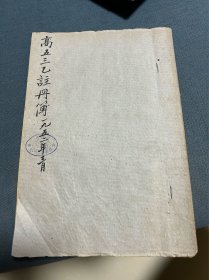 高五三乙註册簿一九五二年三月